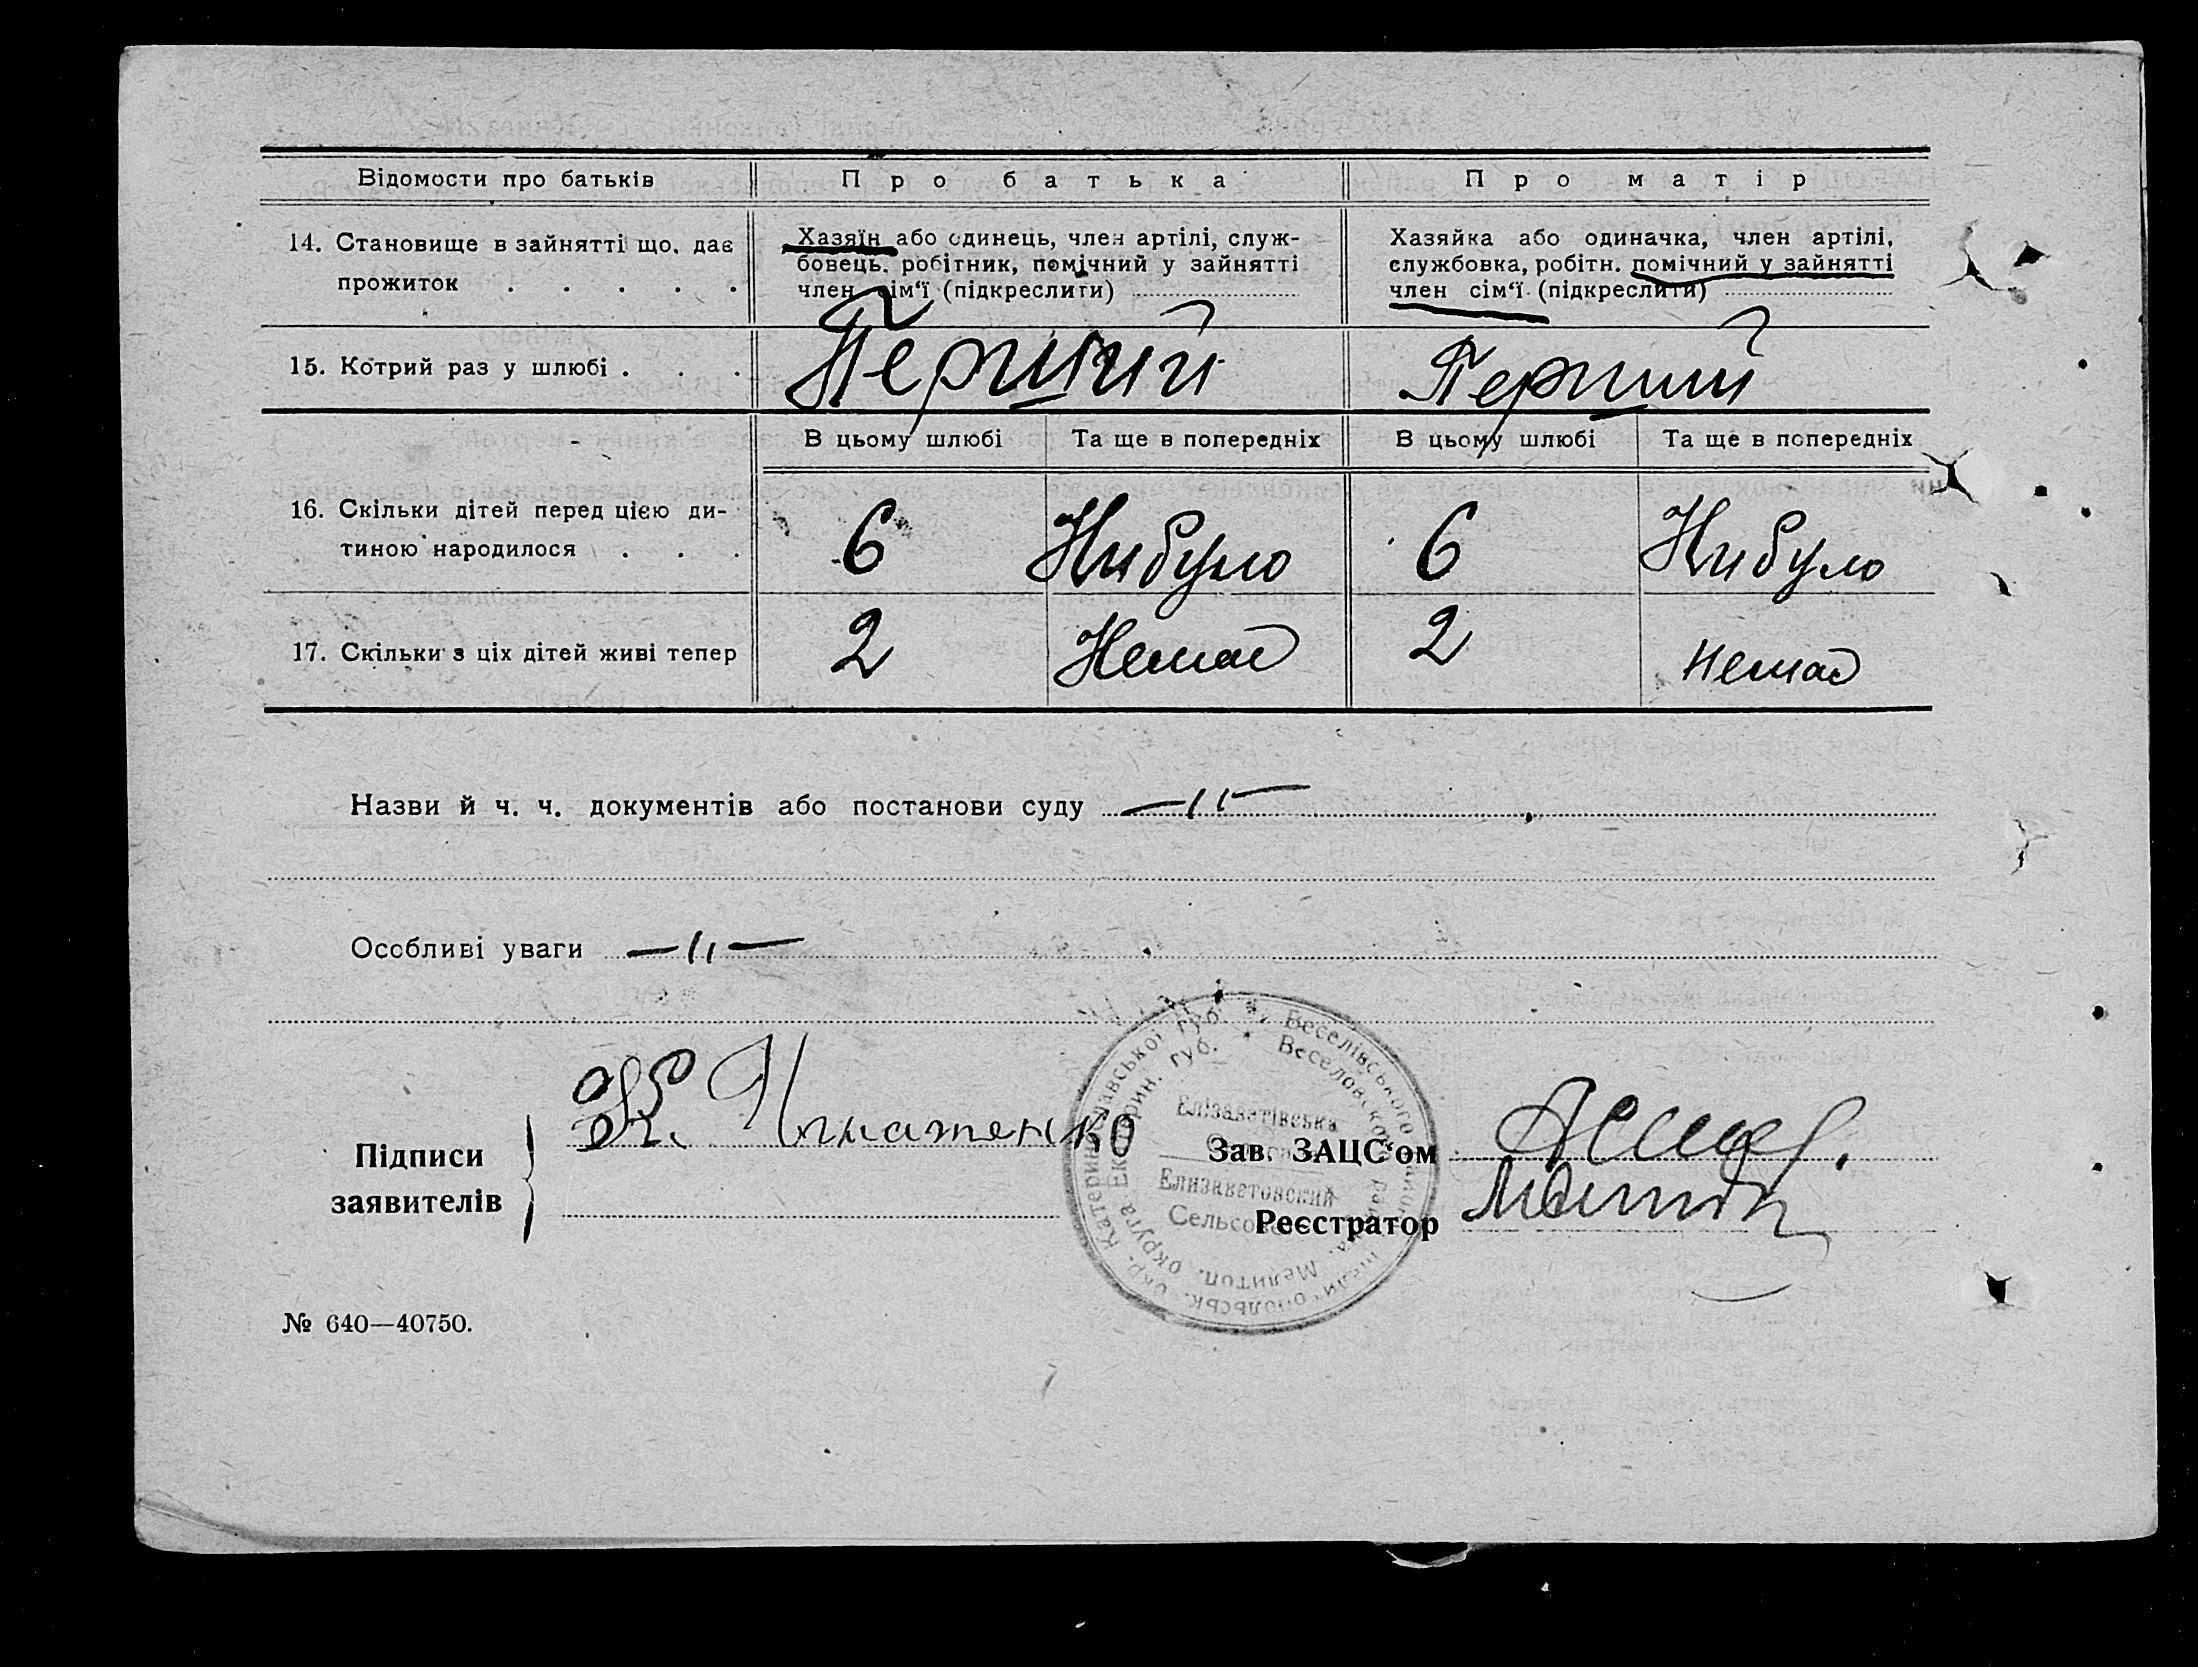 Відомости про батьків
Про батька
Про матір
14. Становище в зайнятті що. дає
прожиток . . . . .
Хазяїн або одинець, член артілі, служ-
бовець. робітник, помічний у зайнятті
член сім‘ї (підкреслити)
Хазяйка або одиначка, член артілі,
службовка, робітн. помічний у зайнятті
член сім‘ї (підкреслити)
15. Котрий раз у шлюбі . . .
Перший
Перший
В цьому шлюбі
Та ще в попередніх
В цьому шлюбі
Та ще в попередніх
16. Скільки дітей перед цією ди-
тиною народилося . . .
6
Нибуло
6
Нибуло
17. Скільки з ціх дітей живі тепер
2
Немає
2
Немає
Назви й ч. ч. документів або постанови суду —||—
Особливі уваги —||—
Підписи
заявителів
Игнатенко
Катеринославської губ. * Веселівського
окр.
Екатерин. губ. * Веселовского
Мелитоп. округа
Елізаветівська
Елизаветовский
Зав. ЗАЦС‘ом
Реєстратор
№ 640—40750.